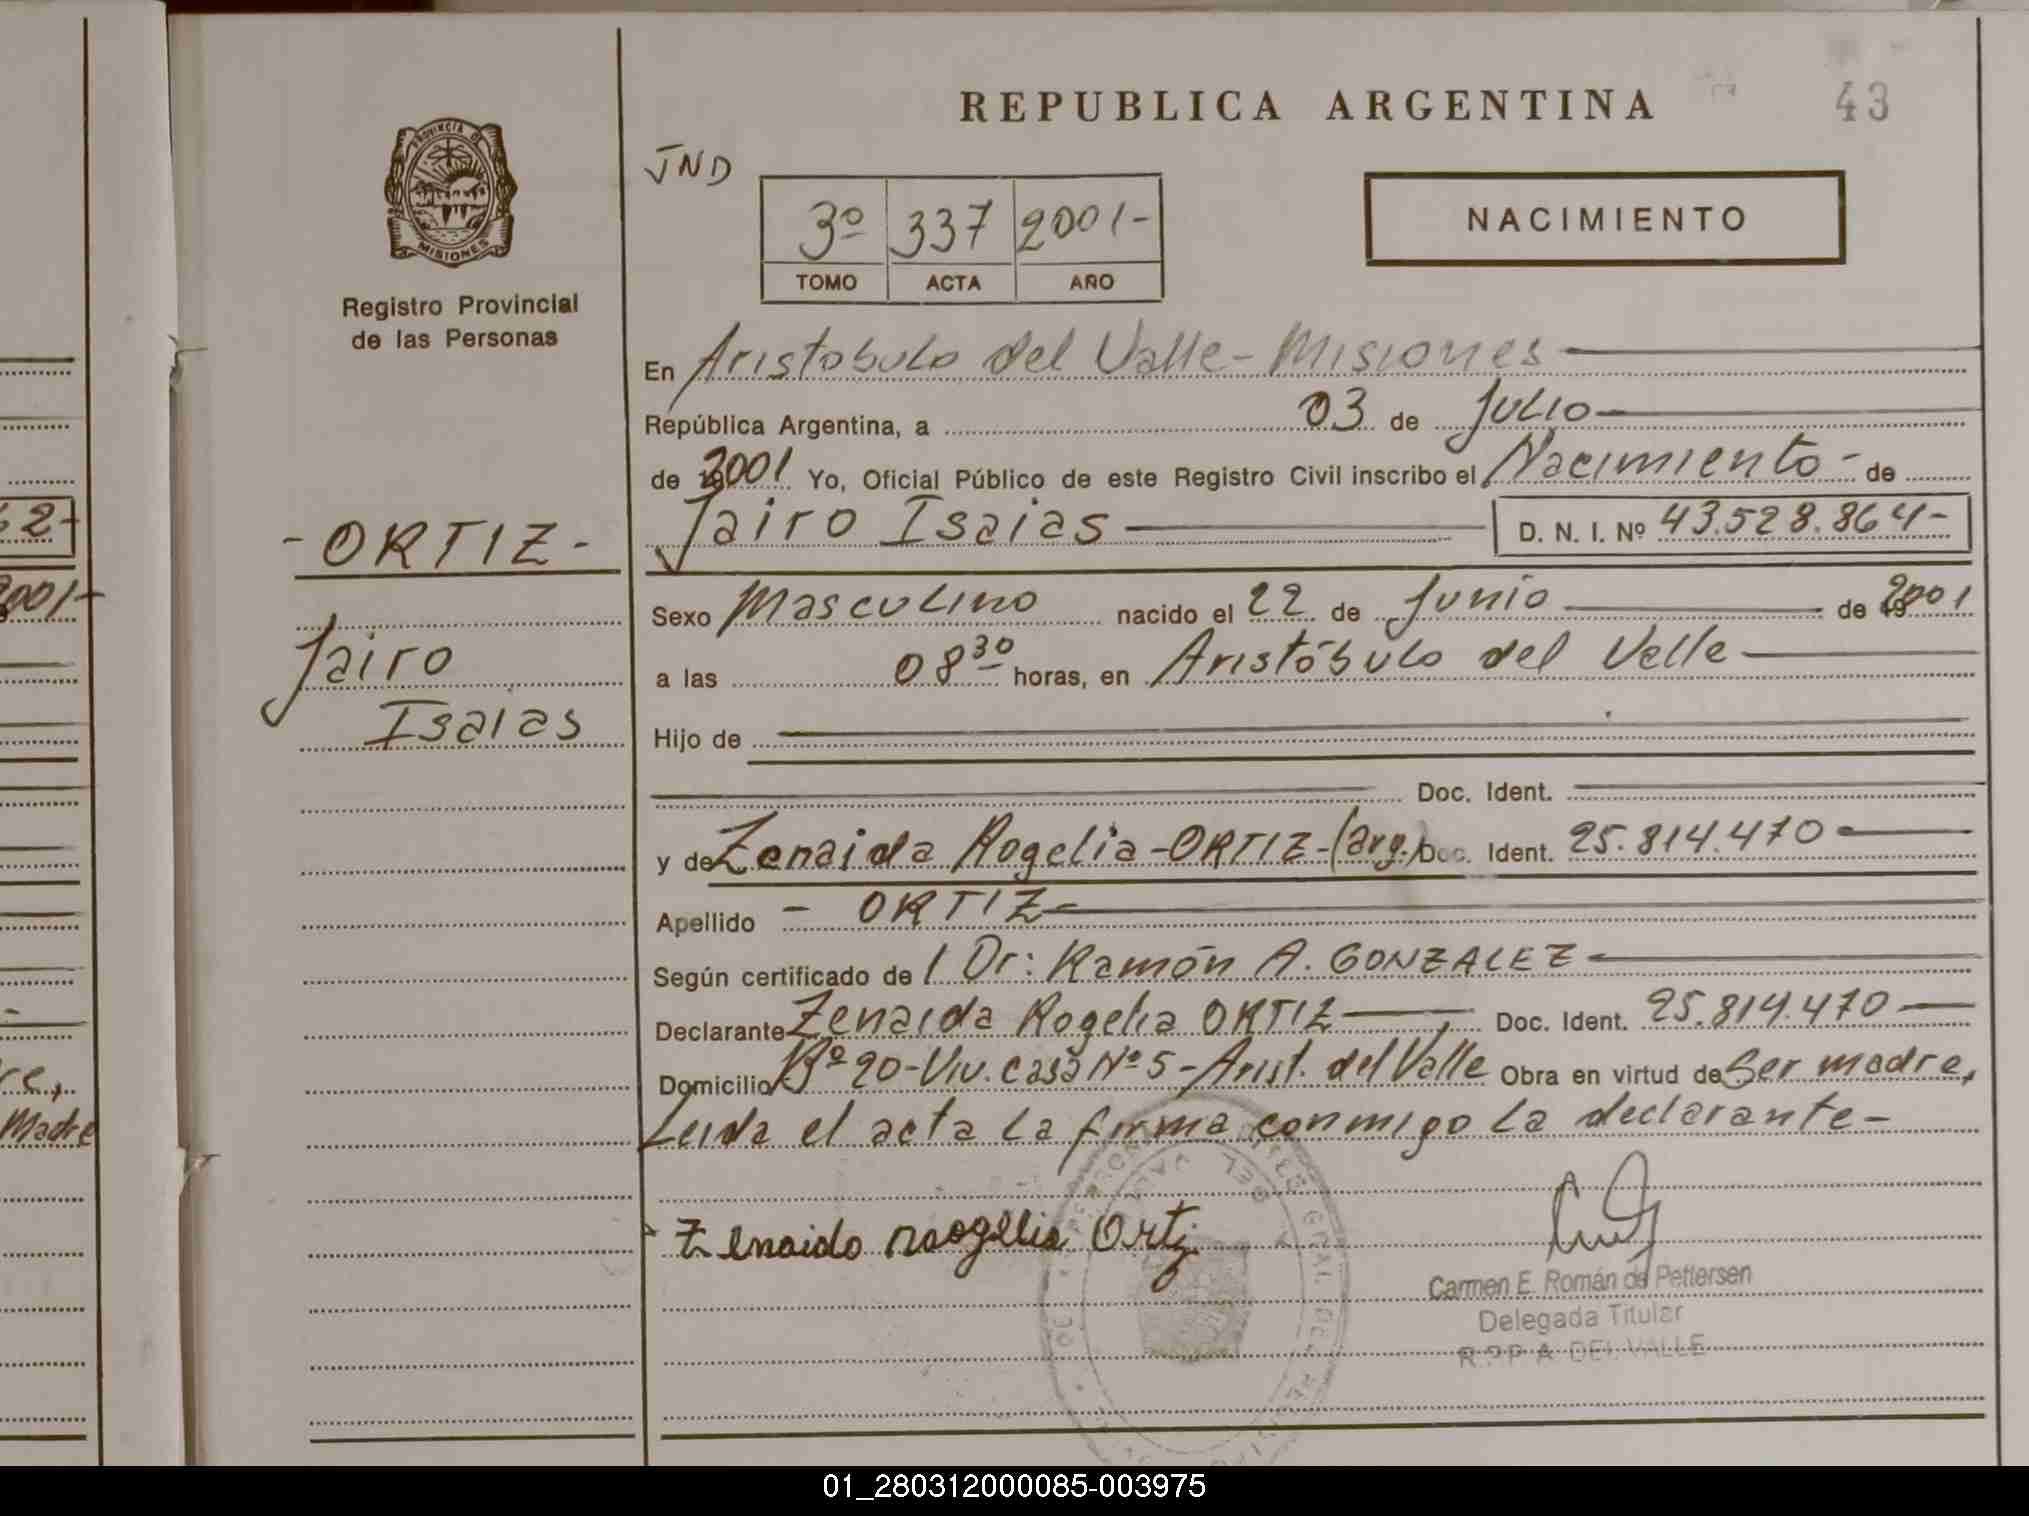 REPUBLICA ARGENTINA
43
PROVINCIA DE
MISIONES
Registro Provincial
de las Personas
JND
3º 337 2001-
TOMO ACTA AÑO
NACIMIENTO
En Aristobulo del Valle - Misiones
República Argentina, a 03 de Julio
de 2001 Yo, Oficial Público de este Registro Civil inscribo el Nacimiento - de
Jairo Isaias D. N. I. Nº 43.528.864-
- ORTIZ -
Jairo
Isaias
Sexo Masculino nacido el 22 de Junio de 2001
a las 08 30 horas, en Aristóbulo del Valle
Hijo de
Doc. Ident.
y de Zenaida Rogelia - ORTIZ - (arg.) Doc. Ident. 25.814.470
Apellido - ORTIZ -
Según certificado de / Dr: Ramón A. GONZALEZ
Declarante Zenaida Rogelia ORTIZ Doc. Ident. 25.814.470
Domicilio Bº 20 - Viv. casa Nº 5 - Arist. del Valle Obra en virtud de Ser madre,
Leida el acta la firma conmigo la declarante -
Zenaida Rogelia Ortiz
Carmen E. Román de Pettersen
Delegada Titular
R.P.P A. DEL VALLE
62-
2001-
re.,
Madre
01_280312000085-003975